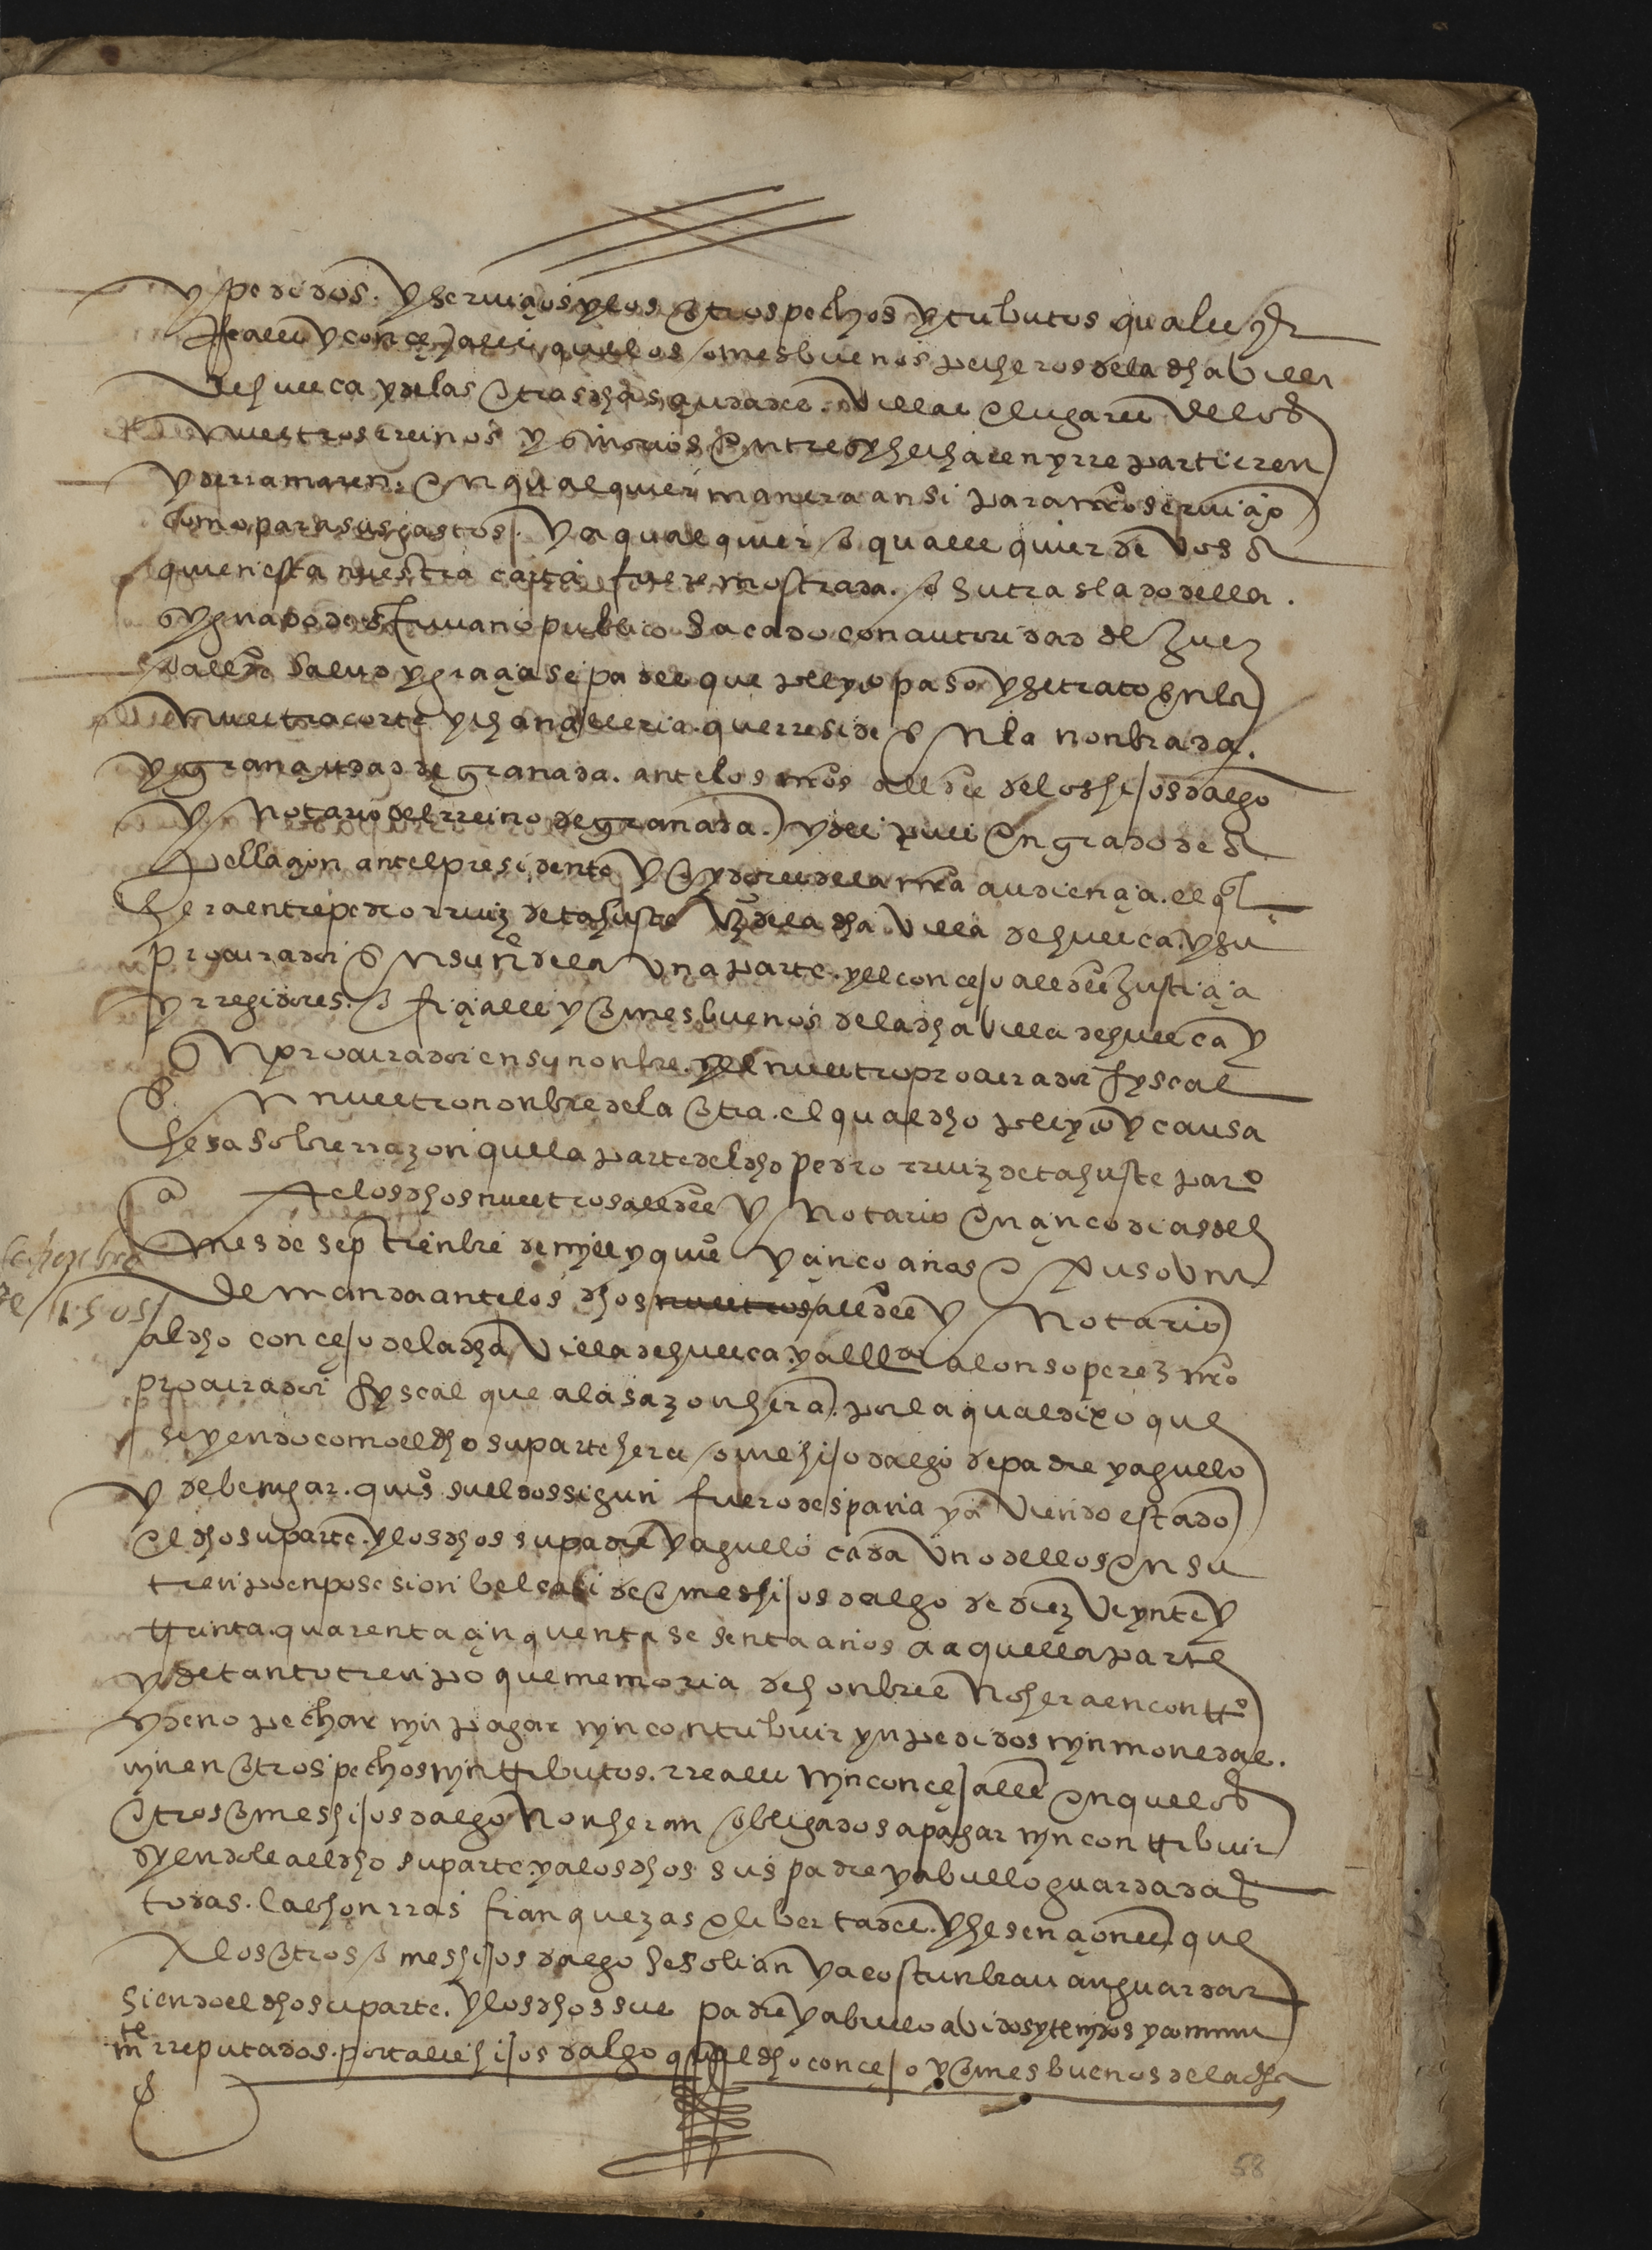 y pedidos. y serviçios y los otros pechos y tributos quales qr
Reales y conçejales quelos omes buenos pecheros dela dha villa
de huesca y delas otras dhas çiudades. villas e lugares delos
nuestros rreinos y señorios entre sy hecharen y rrepartieren
y derramaren. en qualquier manera ansi para nro serviçio
como para sus gastos. y a qualquier o quales quier de vos a
quien esta nuestra carta fuere mostrada. o su traslado della.
sygnado de escrivano publico sacado con autoridad de Juez
o allde salud y graçia sepades que pleyto paso y se trato enla
nuestra corte y chançelleria. que rreside en la nonbrada.
y gran çiudad de granada. ante los nros alldes delos hijos dalgo
y notario del rreino de granada. y des pues en grado de a
pellaçion ante el presidente y oydores dela nra audiençia. el ql
hera entre pedro rruiz de tahuste vzo dela dha villa de huesca. y su
procurador en su ne dela una parte. y el conçejo alldes Justiçia
y rregidores. ofiçiales y omes buenos dela dha villa de huesca y
su procurador en su nonbre. y el nuestro procurador fyscal
en nuestro nonbre dela otra. el qual dho pleyto y causa
hera sobre rrazon quela parte del dho pedro rruiz de tahuste pares
çio Ante los dhos nuestros alldes y notario en çinco dias del
mes de septienbre de myll y quis y çinco años e puso una
setyenbre
de 1505
demanda ante los dhos nuestros alldes y notario
al dho conçejo dela dha villa de huesca. y al lldo alonso perez nro
procurador fyscal que ala sazon hera. por la qual dixo que
siyendo como el dho su parte hera ome hijo dalgo de padre y aguello
y de bengar. quis sueldos sigun fuero despaña y a viendo estado
el dho su parte. y los dhos su padre y aguelo cada uno dellos en su
tienpo en posesion bel casi de omes hijos dalgo de diez veynte y
treinta. quarenta çinquenta sesenta años a aquella parte
y de tanto tienpo que memoria de honbres no hera en contro
y de no pechar nyn pagar nyn contribuir yn pedidos nyn monedas.
nyn en otros pechos nyn tributos. rreales nyn conçejales en quelos
otros omes hijos dalgo no heran obligados a pagar nyn contribuir
syendole al dho su parte. y alos dhos sus padre y abuello guardadas
todas. las honrras franquezas e libertades. y hesençiones que
A los otros omes hijos dalgo se solian y acostunbravan guardar
siendo el dho su parte. y los dhos sus padre y abuelo abidos y tenydos y comun
mte rreputados. por tales hijos dalgo quel dho conçejo y omes buenos dela dha
58